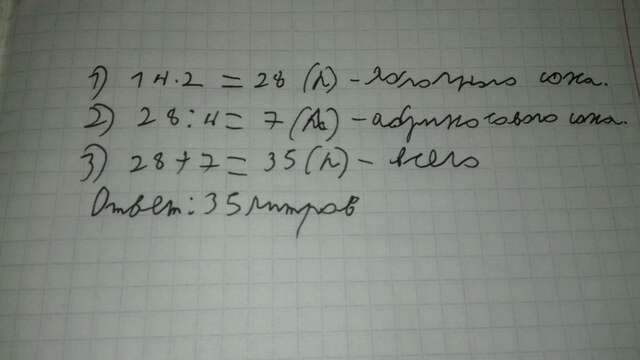 1) 14·2 = 28 (л) – яблочного сока.
2) 28:4 = 7 (л) – абрикосового сока.
3) 28+7 = 35 (л) – всего
Ответ: 35 литров